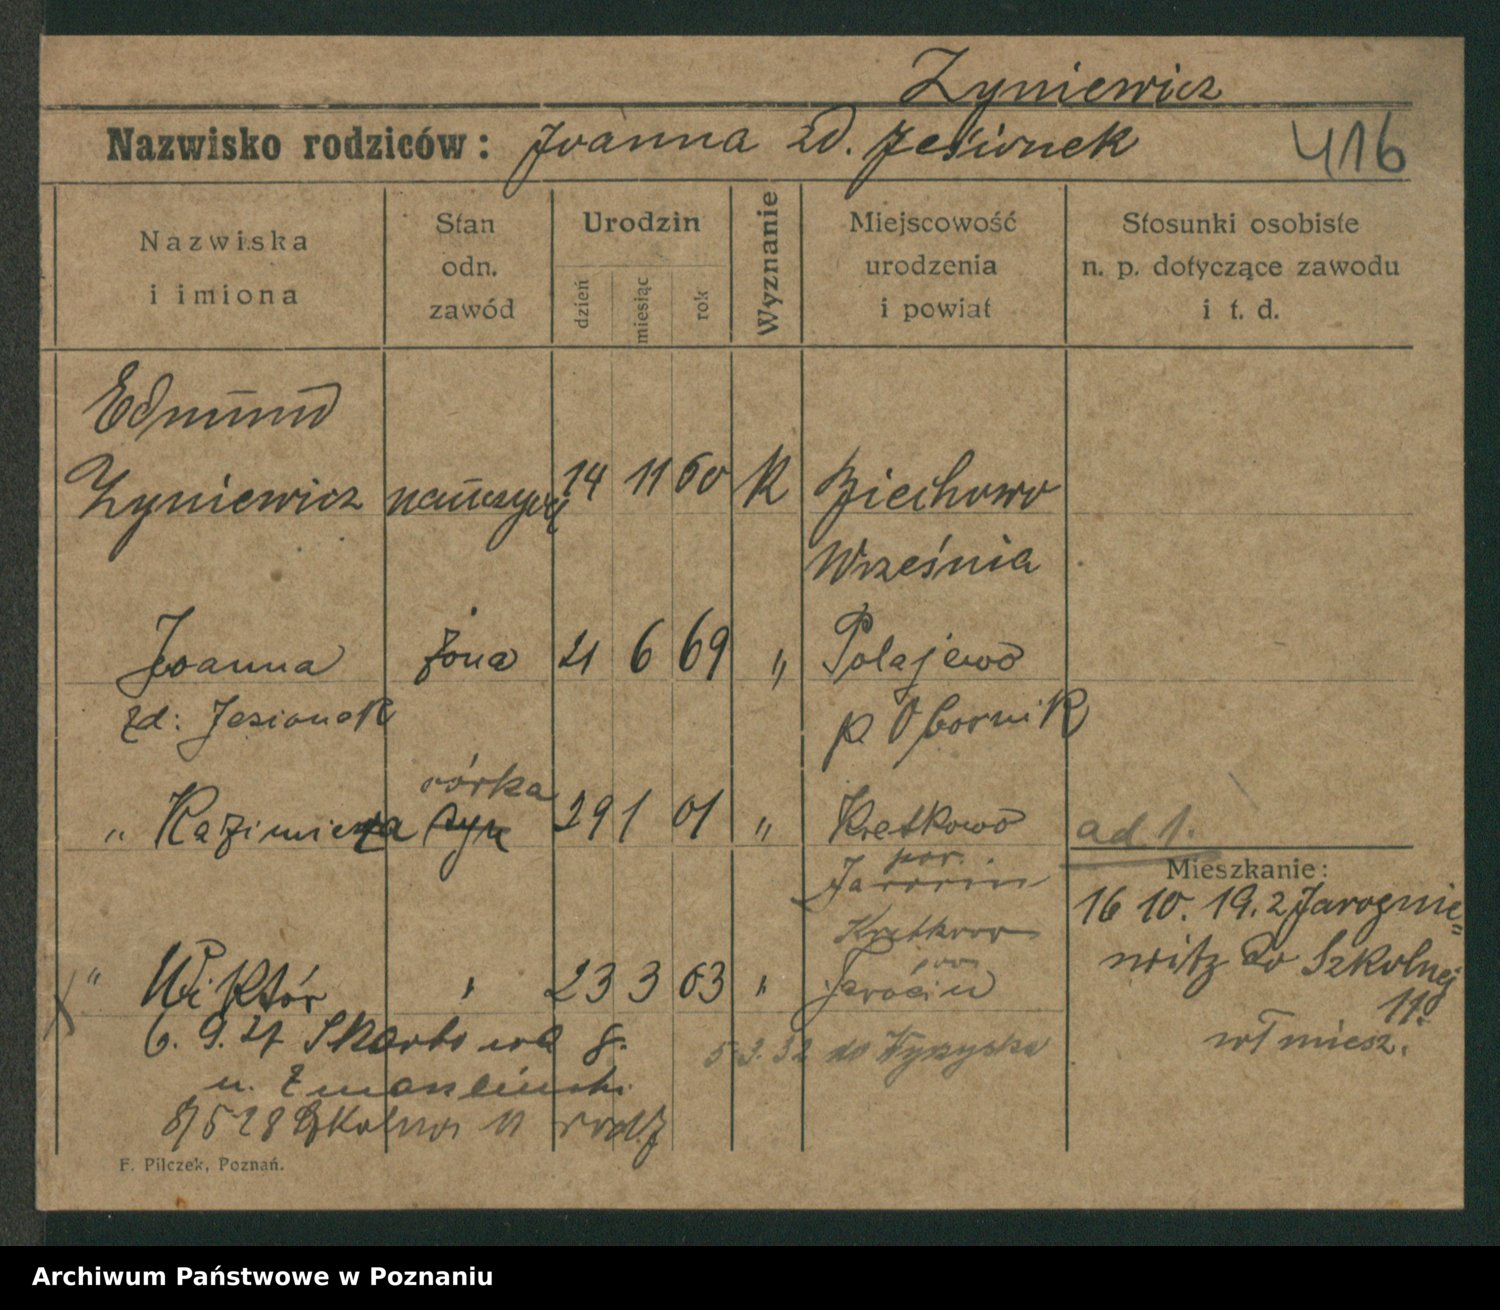 Zyniewicz
Nazwisko rodziców: Joanna zd. Jesionek 416
Nazwiska i imiona
Stan odn. zawód
Urodzin
dzień miesiąc rok
Wyznanie
Miejscowość urodzenia i powiat
Stosunki osobiste n. p. dotyczące zawodu i t. d.
Edmund
Zyniewicz 14 11 60 K Biechowo
Września
Joanna żona 21 6 69 " Połajewo
zd: Jesionek p. Obornik
córka
" Kazimiera syn 29 1 01 " Kretkowo ad 1.
pow.
Jarocin
Mieszkanie:
16 10. 19. z Jarognie=
witz do Szkolnej
11
wł miesz.
Kretkowo
pow
" Wiktór " 23 3 03 " Jarocin
6. 9. 21 Skarbowa 8.
u.
5 3. 32 do Wyrzyska
8/5 28 Szkolna 11 rodz
F. Pilczek, Poznań.
Archiwum Państwowe w Poznaniu